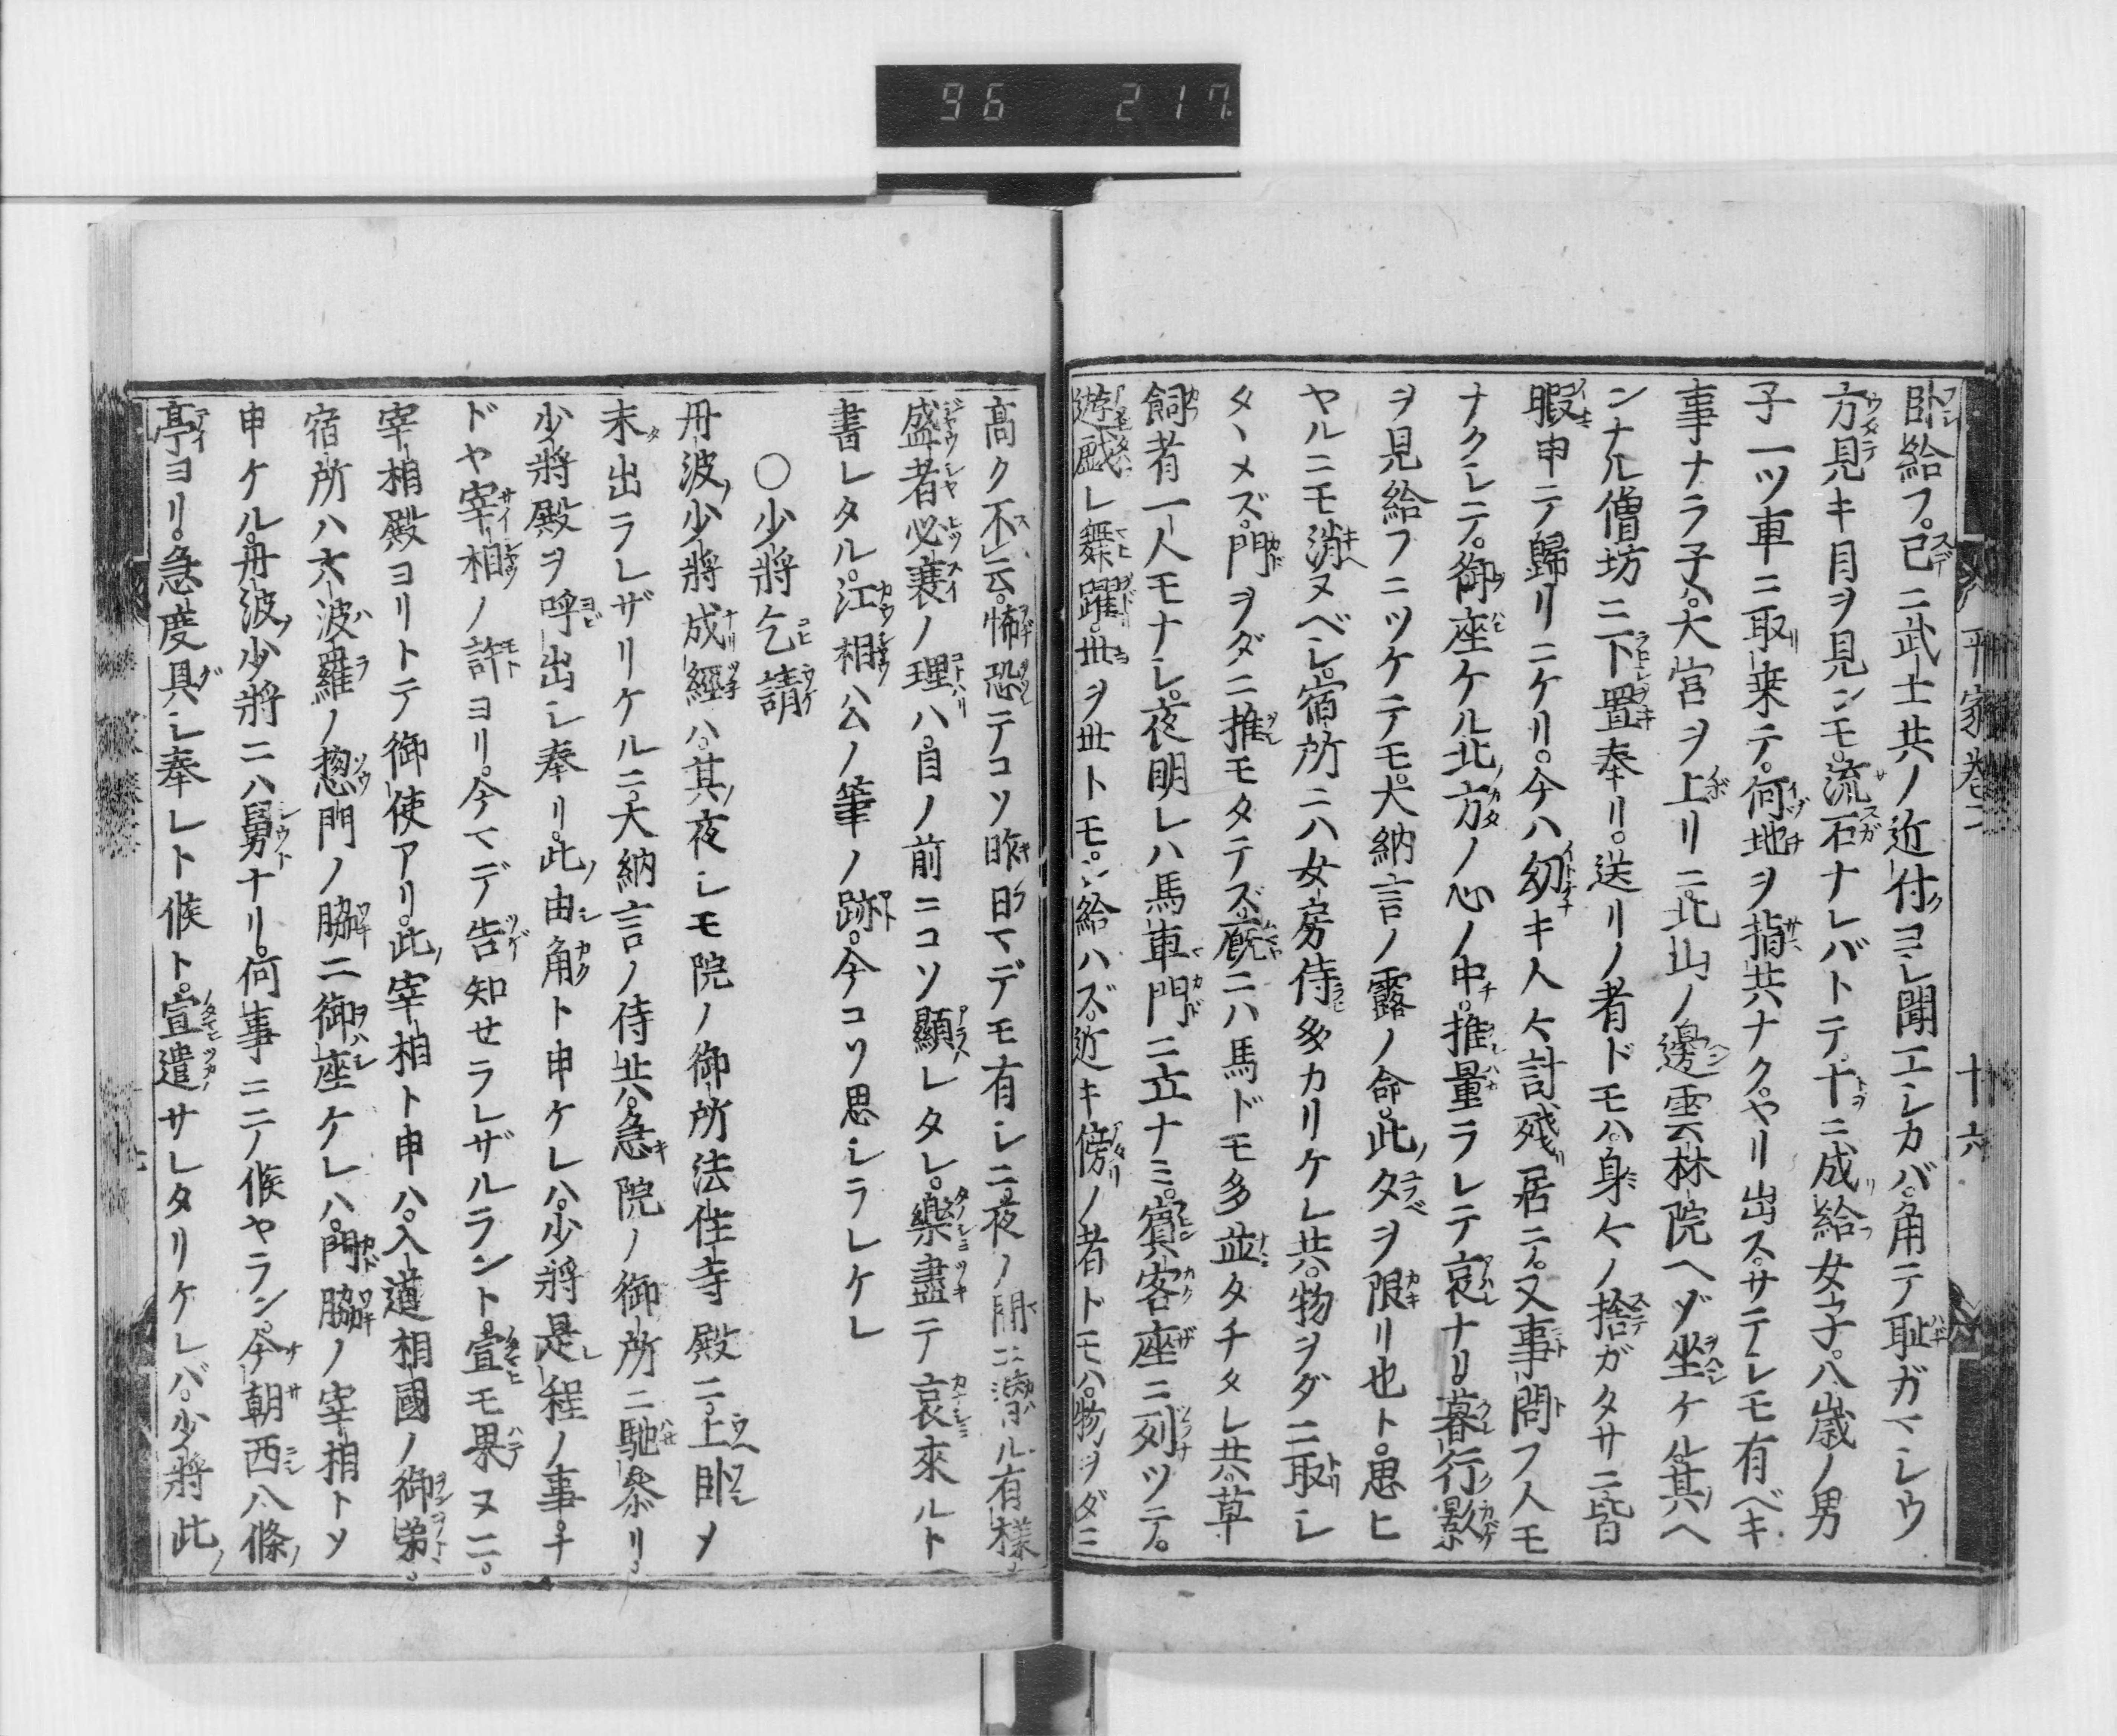 96 217.
平家巻二 十六
臥給フ。已ニ武士共ノ近付ヨシ聞エシカバ。角テ耻ガマシウ
方見キ目ヲ見ンモ。流石ナレバトテ。十ニ成給女子。八歳ノ男
子一ツ車ニ取来テ。何地ヲ指共ナク。ヤリ出ス。サテシモ有ベキ
事ナラ子ハ。大宮ヲ上リニ。北山ノ邊雲林院ヘゾ坐ケル。其ヘ
ンナル僧坊ニ下置奉リ。送リノ者ドモハ。身々ノ捨ガタサニ皆
暇申テ歸リニケリ。今ハ幼キ人々計残居ニ。又事問フ人モ
ナクシテ。御座ケル北方ノ心ノ中。推量ラレテ哀ナリ。暮行影
ヲ見給フニツケテモ。大納言ノ露ノ命。此夕ヲ限リ也ト。思ヒ
ヤルニモ消ヌベシ。宿所ニハ女房侍多カリケレ共。物ヲダニ取シ
タヽメズ。門ヲダニ推モタテズ。厩ニハ馬ドモ多並タチタレ共。草
飼者一人モナシ。夜明レハ馬車門ニ立ナミ。賓客座ニ列ツテ。
遊戯レ舞躍。世ヲ世トモシ給ハズ。近キ傍ノ者トモハ。物ヲダニ
高ク不云。怖恐テコソ昨日マデモ有シニ。夜ノ間ニ替ル有様。
盛者必衰ノ理ハ。目ノ前ニコソ顯レタレ。樂盡テ哀來ルト
書レタル。江相公ノ筆ノ跡。今コソ思シラレケレ
〇少將乞請
丹波少將成經ハ。其夜シモ院ノ御所法住寺殿ニ。上臥ソ
未出ラレザリケルニ。大納言ノ侍共。急院ノ御所ニ馳參リ。
少將殿ヲ呼出シ奉リ。此由角ト申ケレハ。少將是程ノ事ヲ
ドヤ宰相ノ許ヨリ。今マデ告知セラレザルラント。宣モ果ヌニ。
宰相殿ヨリトテ御使アリ。此宰相ト申ハ。入道相國ノ御弟。
宿所ハ六波羅ノ惣門ノ脇ニ御座ケレハ。門脇ノ宰相トソ
申ケル。丹波少將ニハ舅ナリ。何事ニテノ候ヤラン。今朝西八條ノ
亭ヨリ。急度具シ奉レト候ト。宣遣サレタリケレバ。少將此